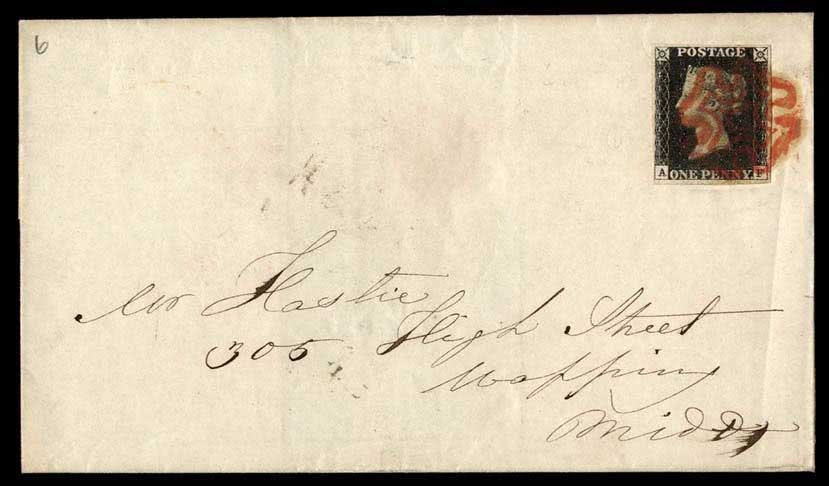 6
POSTAGE
A ONE PENNY F
Mr Hastie
306 High Street
Wapping
Middx